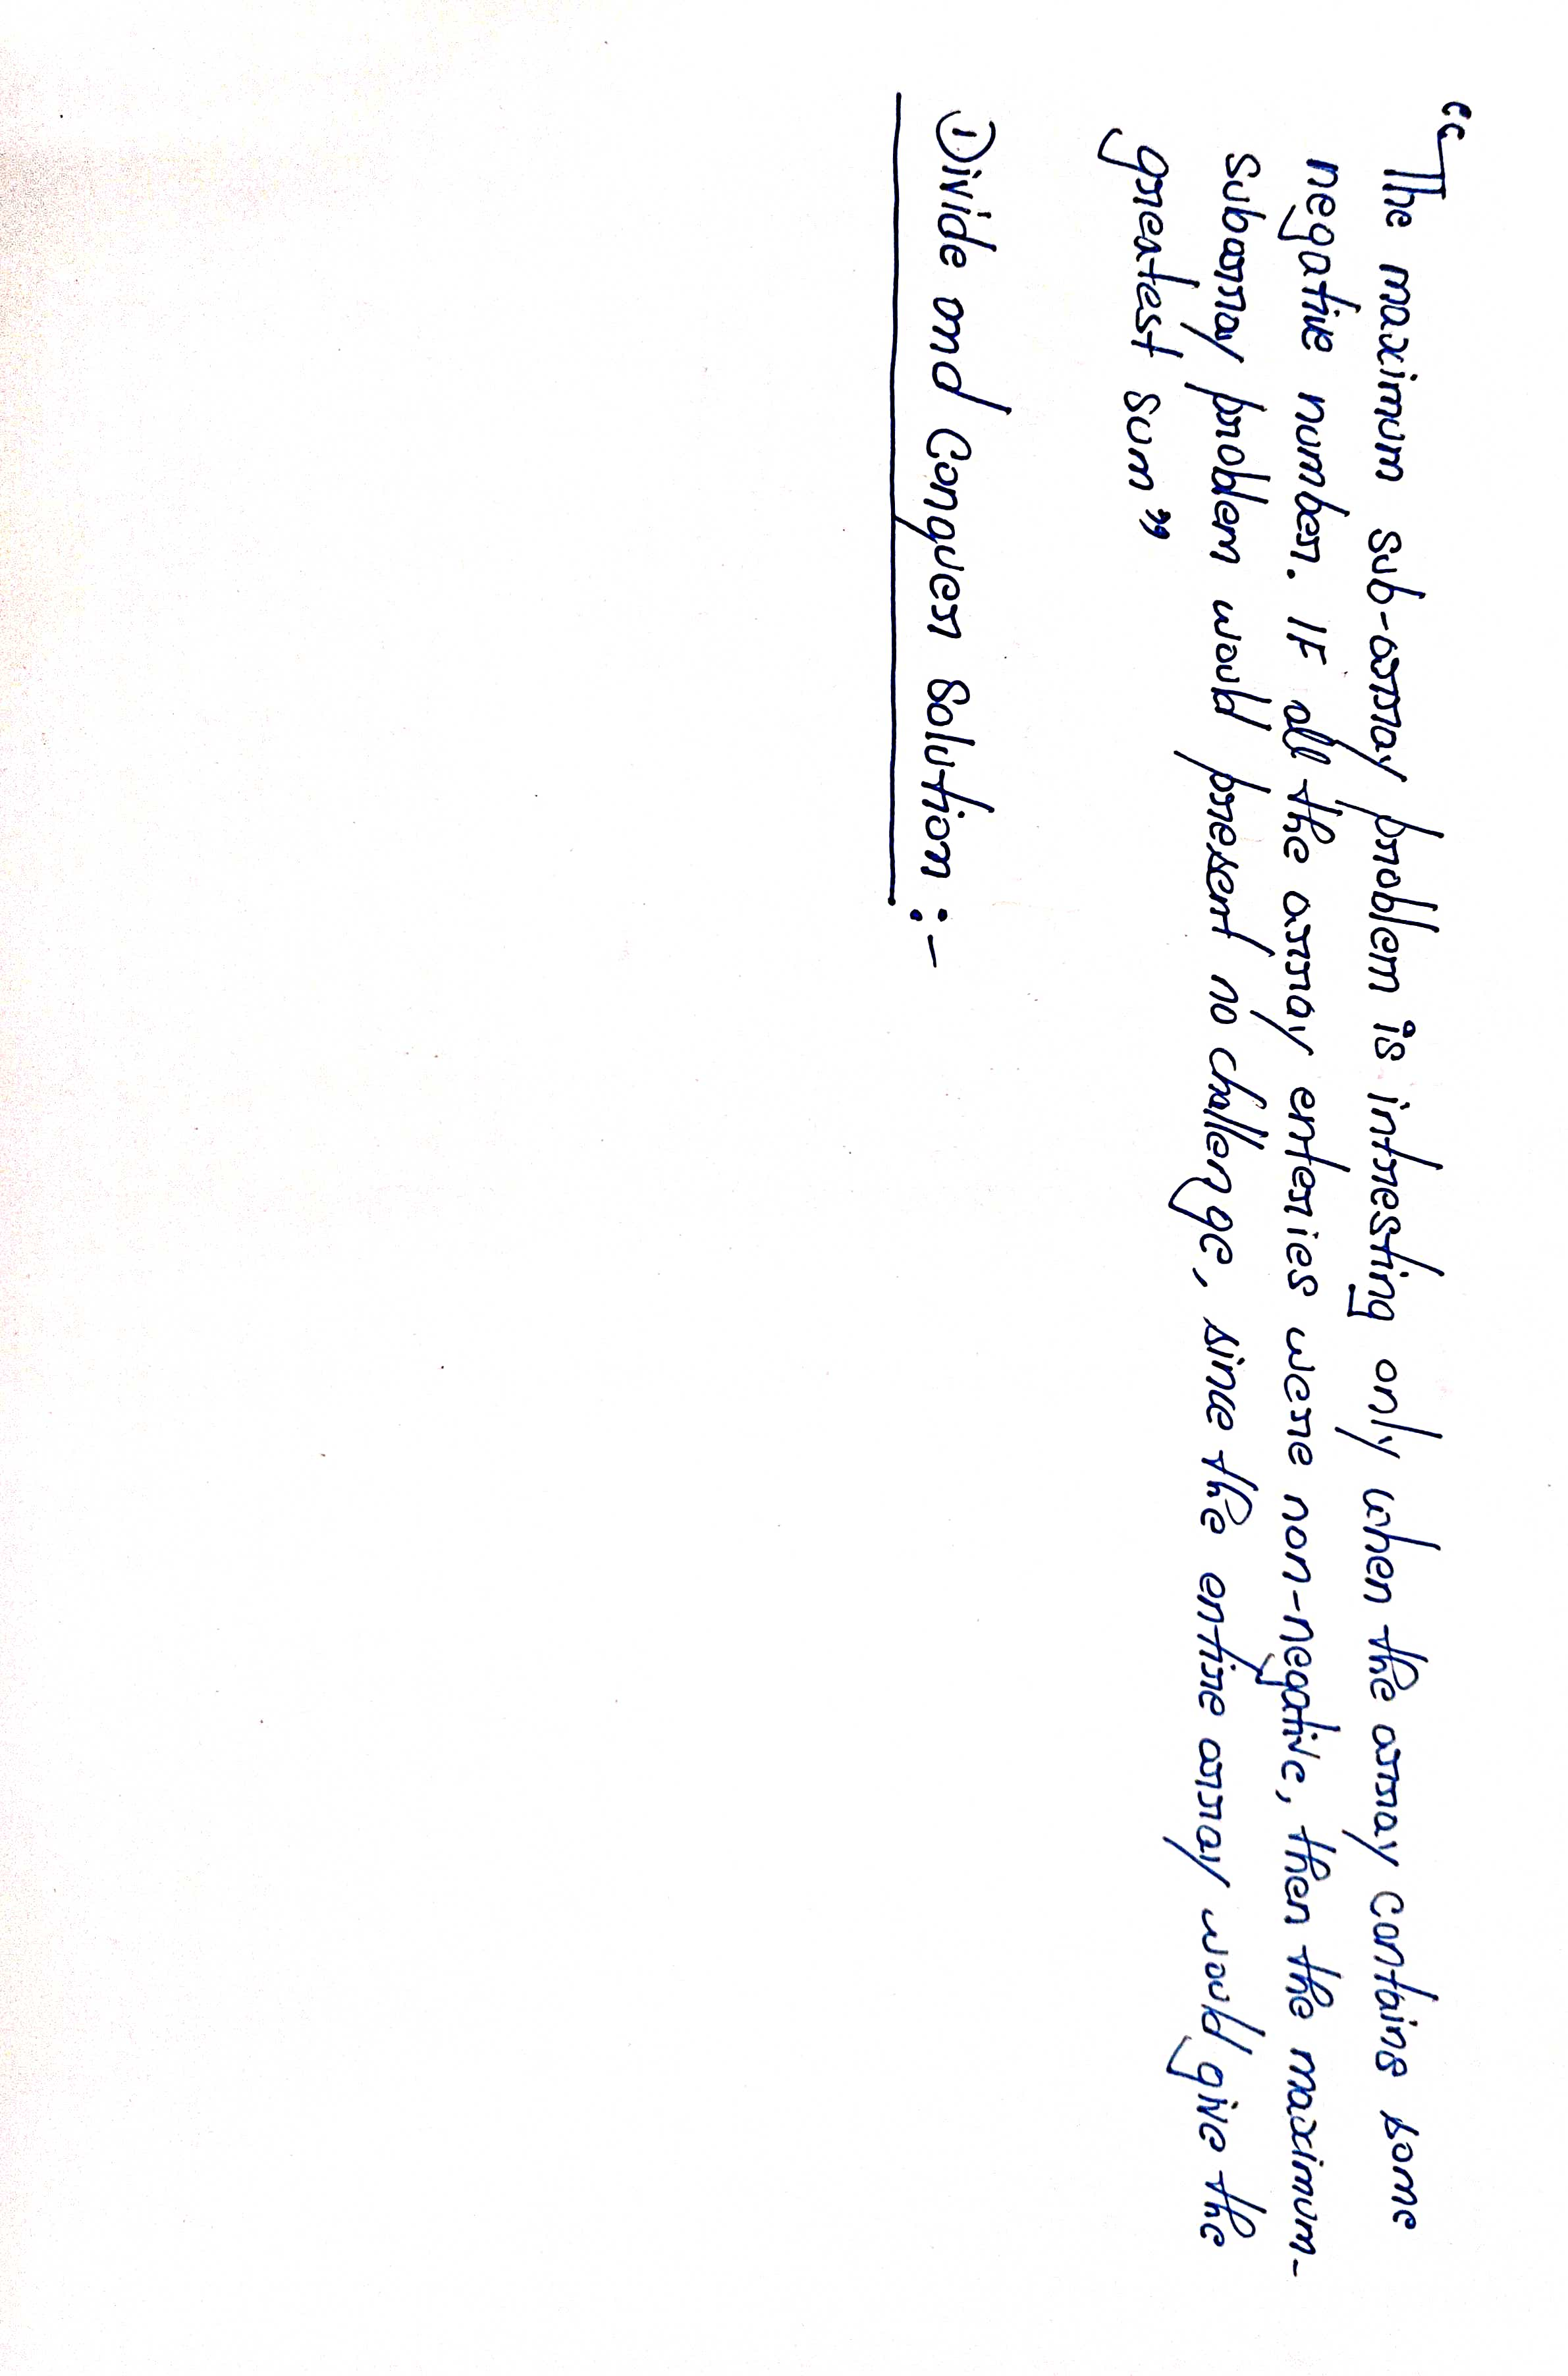 “The maximum sub-array problem is intresting only when the array contains some
negative number. IF all the array enteries were non-negative, then the maximum-
subarray problem would present no challenge, since the entire array would give the
greatest sum”
Divide and Conquer Solution :-